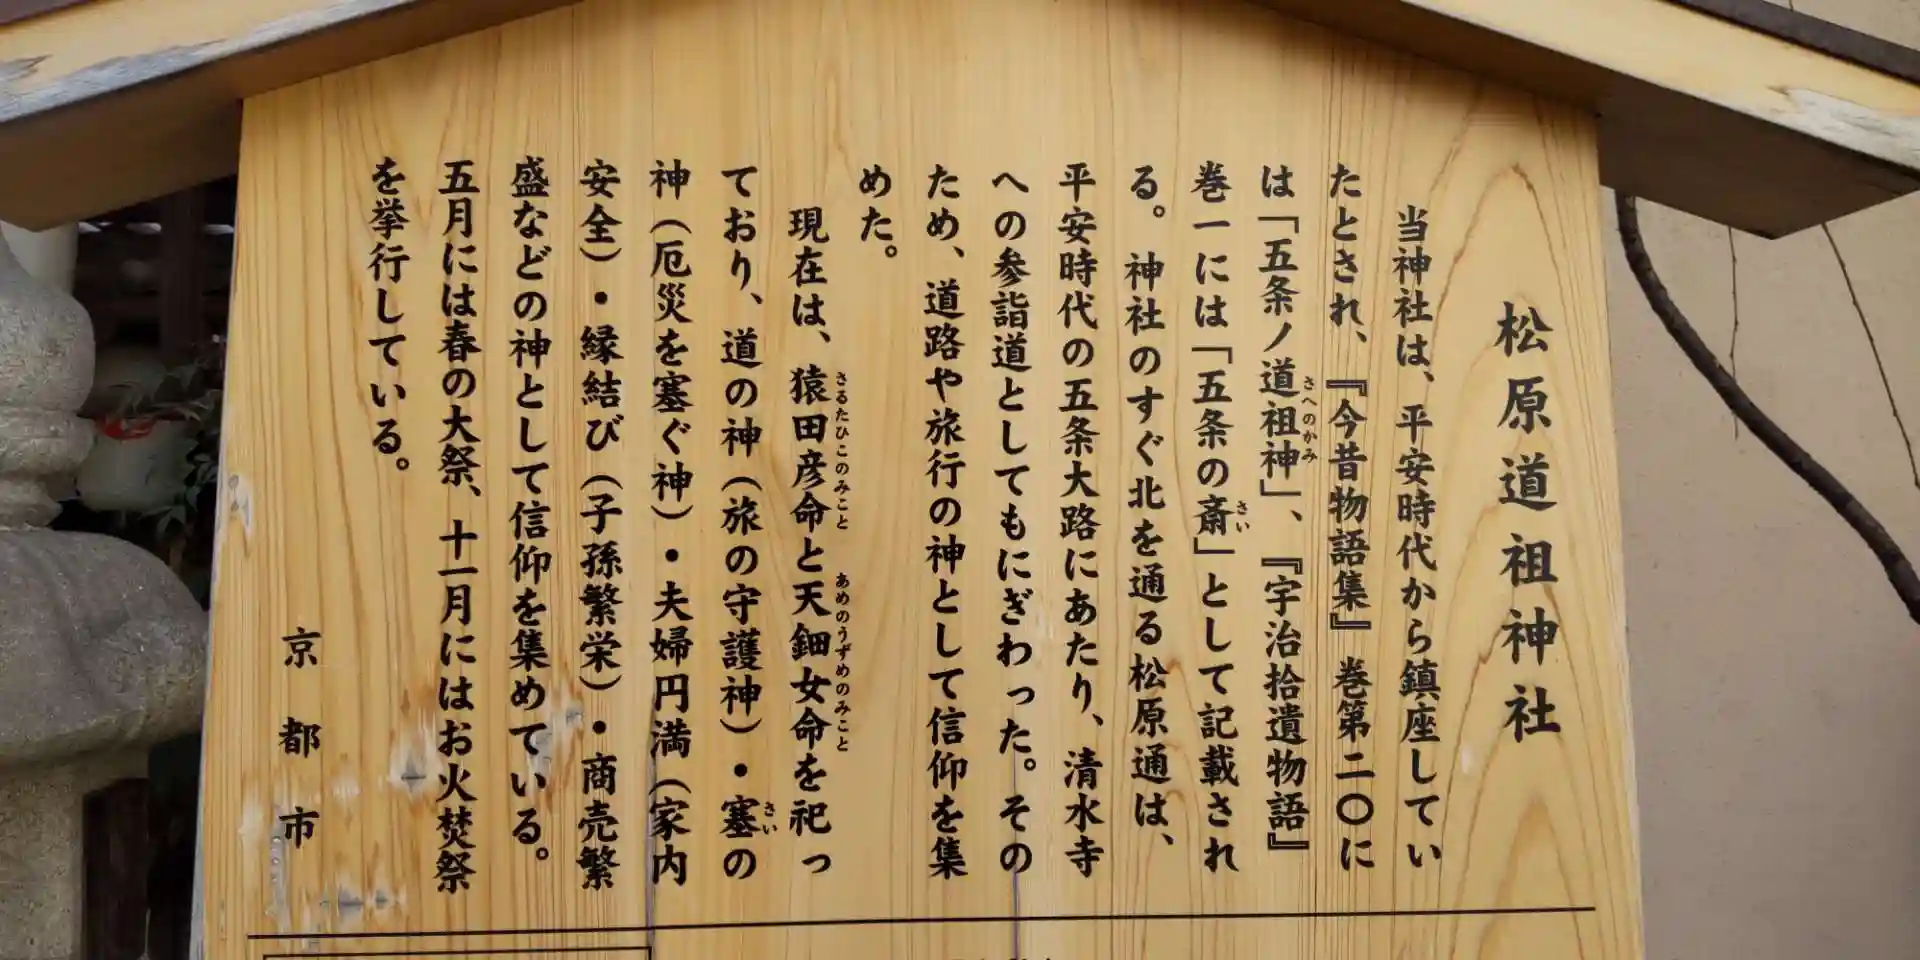 松原道祖神社
当神社は、平安時代から鎮座してい
たとされ、『今昔物語集』巻第二〇に
は「五条ノ道祖神」、『宇治拾遺物語』
さへのかみ
巻一には「五条の斎」として記載され
さい
る。神社のすぐ北を通る松原通は、
平安時代の五条大路にあたり、清水寺
への参詣道としてもにぎわった。その
ため、道路や旅行の神として信仰を集
めた。
現在は、猿田彦命と天鈿女命を祀っ
さるたひこのみこと
あめのうずめのみこと
ており、道の神（旅の守護神）・塞の
さい
神（厄災を塞ぐ神）・夫婦円満（家内
安全）・縁結び（子孫繁栄）・商売繁
盛などの神として信仰を集めている。
五月には春の大祭、十一月にはお火焚祭
を挙行している。
京都市